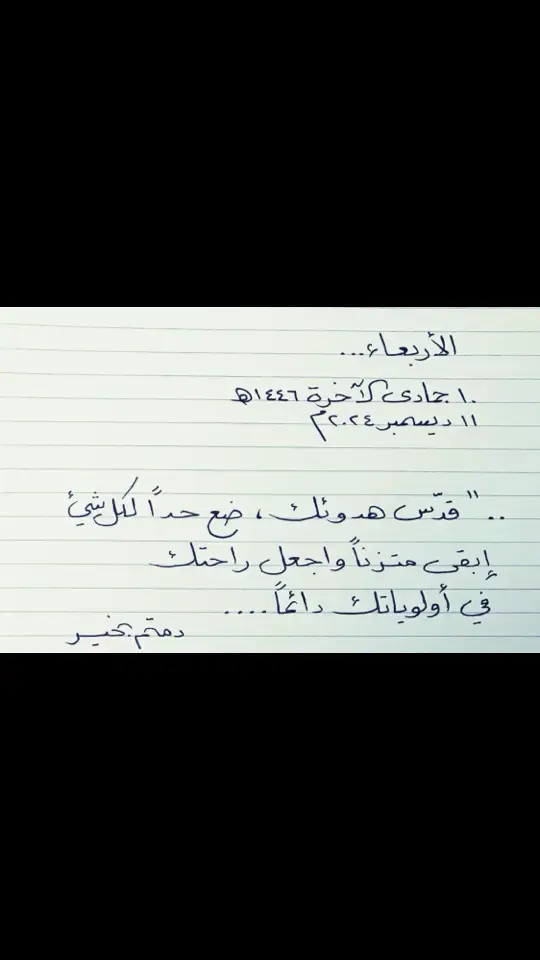 الأربعاء...
١٠ جمادى الآخرة ١٤٤٦هـ
١١ ديسمبر ٢٠٢٤م
.." قدّس هدوئك ، ضع حداً لكل شيئ
إبقى متزناً واجعل راحتك
في أولوياتك دائماً....
دمتم بخير